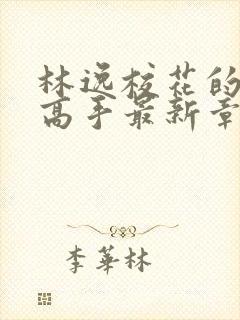 林逸校花的
高手最新章
李華林